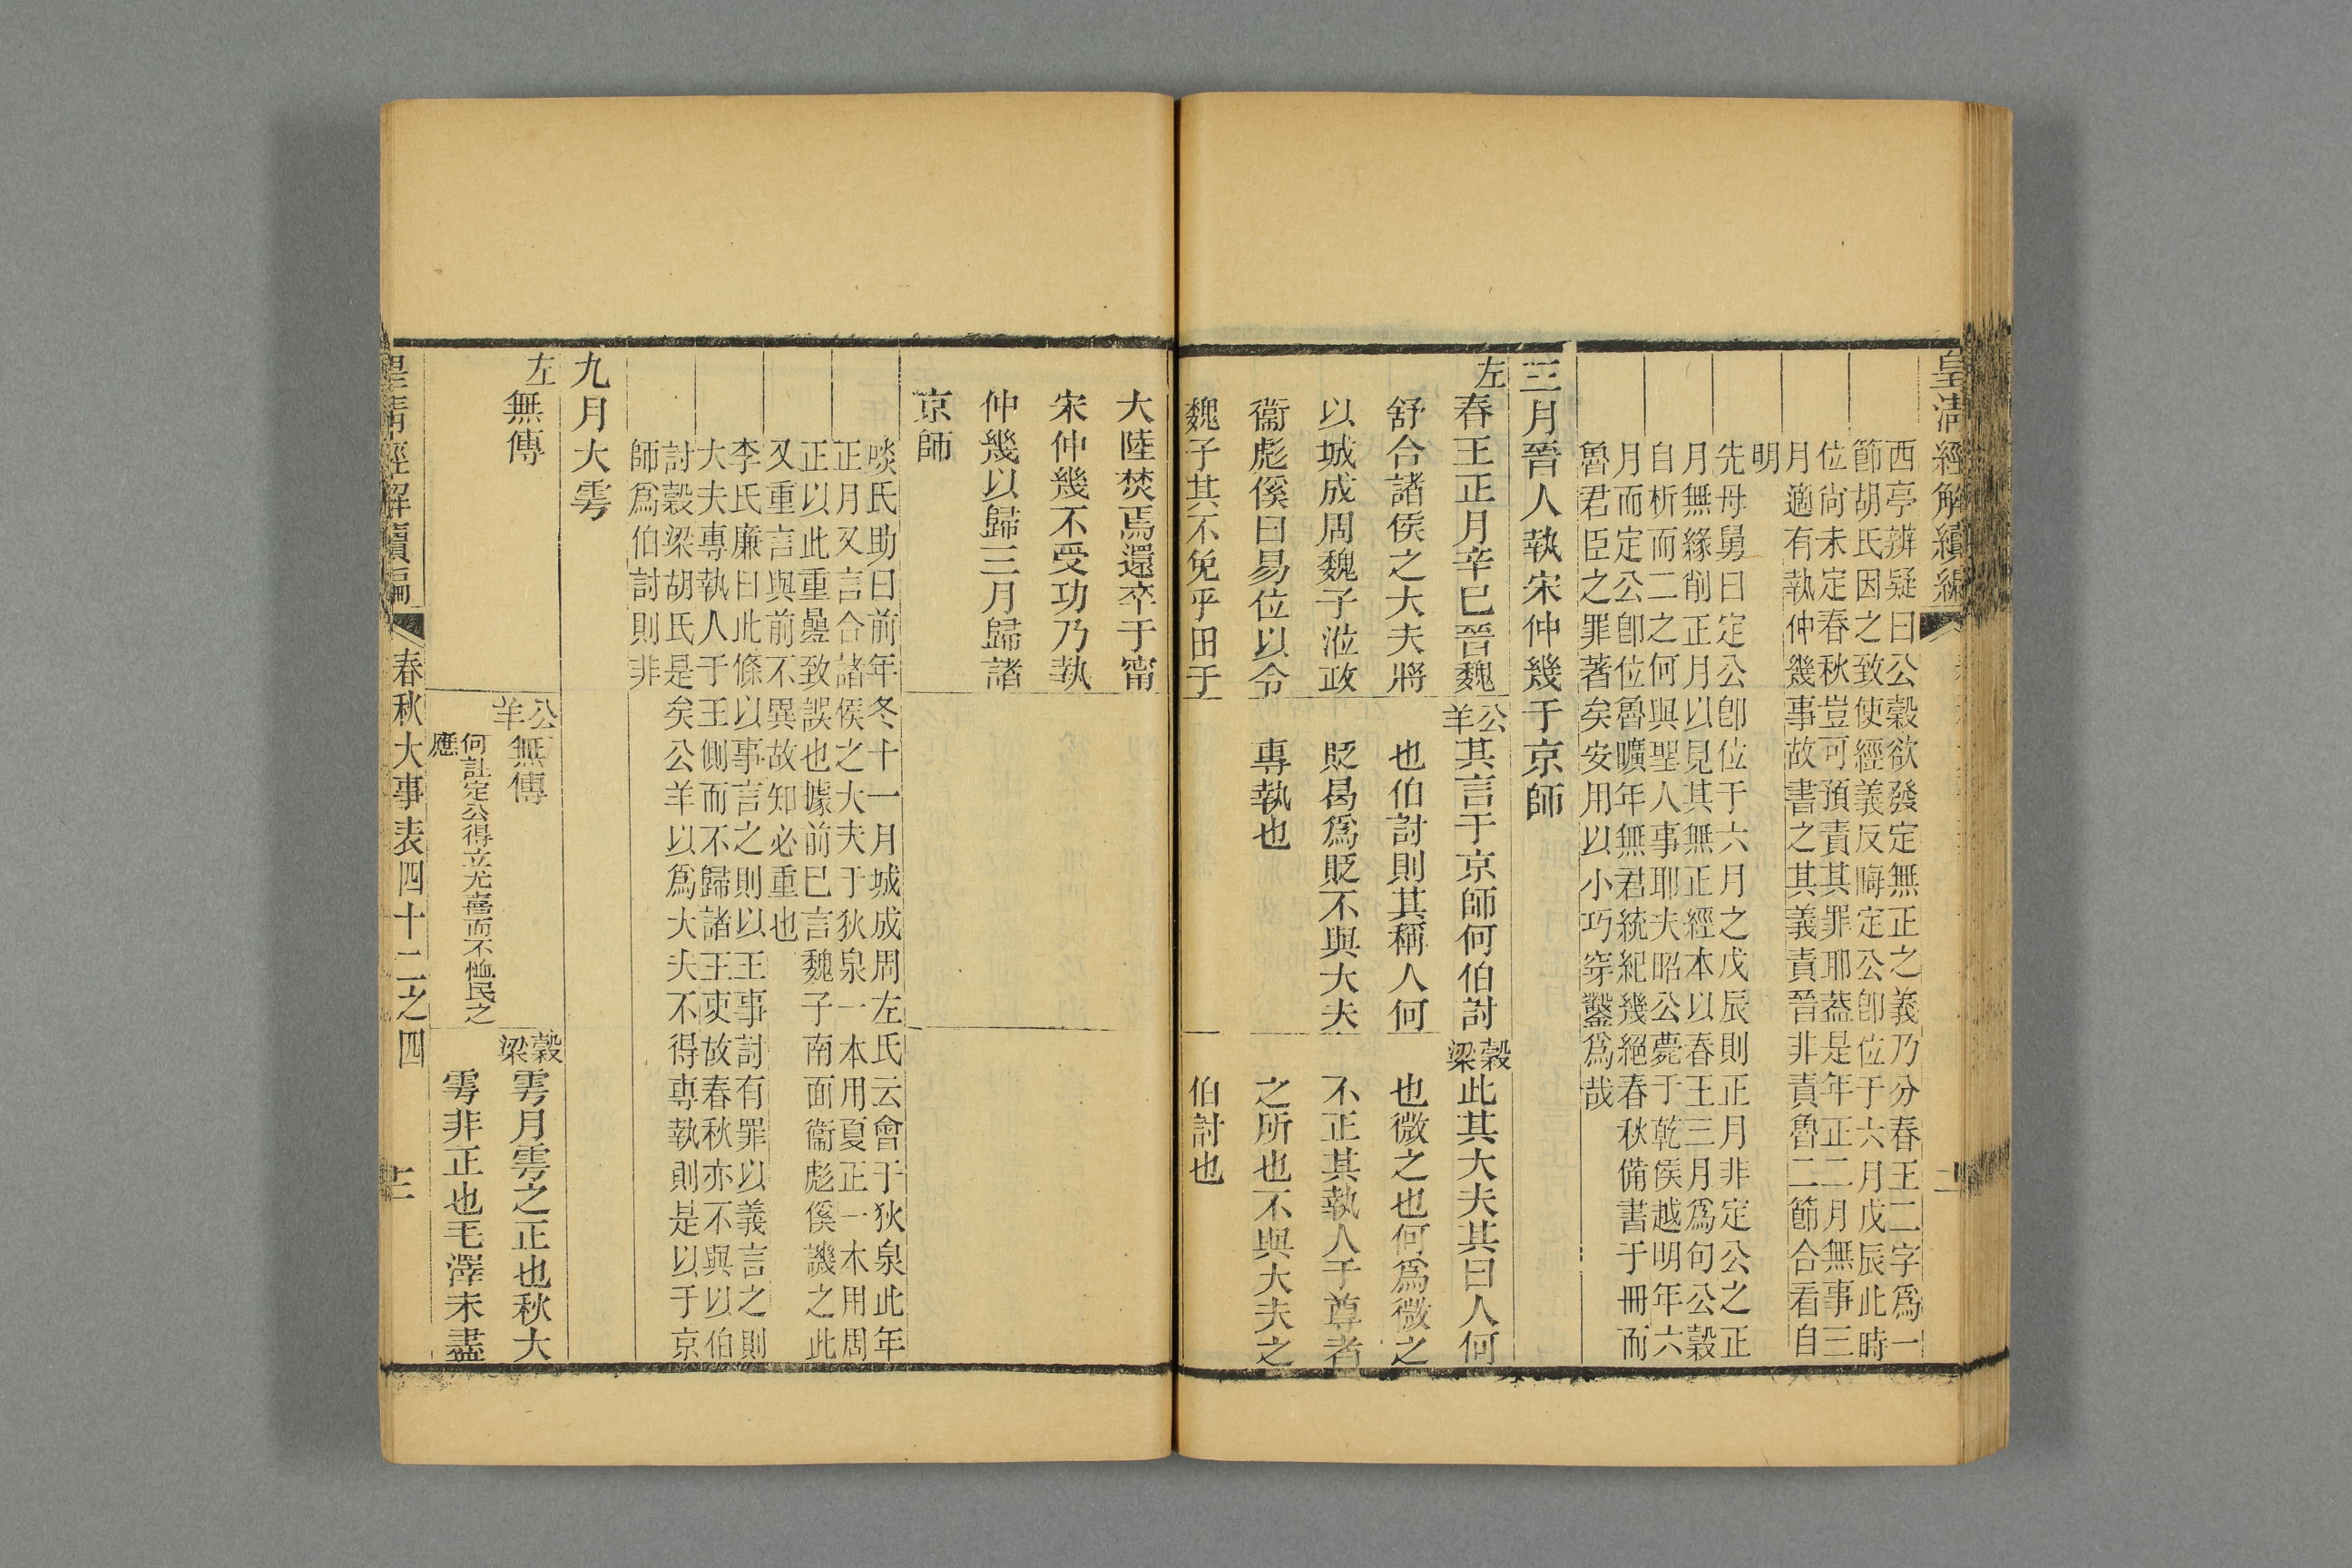 皇清經解續編
西亭辨疑曰公穀欲發定無正之義乃分春王二字爲一
節胡氏因之致使經義反晦定公卽位于六月戊辰此時
位尙未定春秋豈可預責其罪耶葢是年正二月無事三
月適有執仲幾事故書之其義責晉非責魯二節合看自
明
先母舅曰定公卽位于六月之戊辰則正月非定公之正
月無緣削正月以見其無正經本以春王三月爲句公穀
自析而二之何與聖人事耶夫昭公薨于乾侯越明年六
月而定公卽位魯曠年無君統紀幾絕春秋備書于冊而
魯君臣之罪著矣安用以小巧穿鑿爲哉
三月晉人執宋仲幾于京師
左春王正月辛巳晉魏
舒合諸侯之大夫將
以城成周魏子涖政
衞彪傒曰易位以令
魏子其不免乎田于
公羊其言于京師何伯討
也伯討則其稱人何
貶曷爲貶不與大夫
專執也
穀梁此其大夫其曰人何
也微之也何爲微之
不正其執人于尊者
之所也不與大夫之
伯討也
大陸焚焉還卒于甯
宋仲幾不受功乃執
仲幾以歸三月歸諸
京師
啖氏助曰前年冬十一月城成周左氏云會于狄泉此年
正月又言合諸侯之大夫于狄泉一本用夏正一本用周
正以此重疊致誤也據前已言魏子南面衞彪傒譏之此
又重言與前不異故知必重也
李氏廉曰此條以事言之則以王事討有罪以義言之則
大夫專執人于王側而不歸諸王吏故春秋亦不與以伯
討穀梁胡氏是矣公羊以爲大夫不得專執則是以于京
師爲伯討則非
九月大雩
左無傳
公羊無傳
何註定公得立尤喜而不恤民之
應
穀梁雩月雩之正也秋大
雩非正也毛澤未盡
皇清經解續編
春秋大事表四十二之四